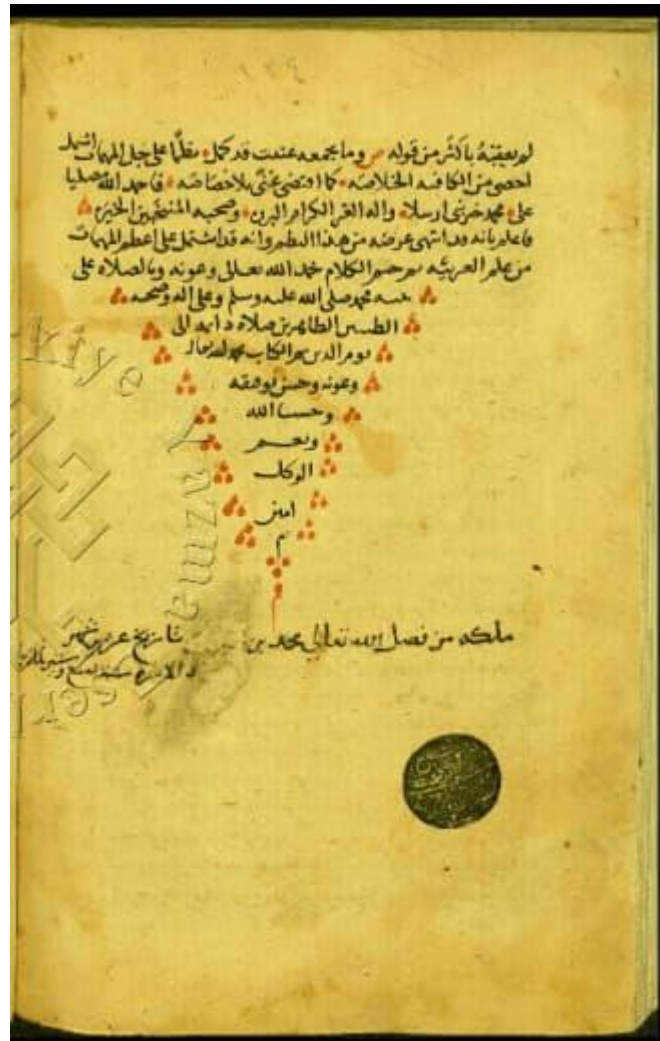 ١٣٤
لم يعقبه بأكثر من قوله ص وما بجمعه عنيت قد كمل نظما على جل المهمات اشتمل
احصى من الكافيه الخلاصه كما اقتضى غنى بلا خصاصه فاحمد الله مصليا
على محمد خير نبي ارسلا واله الغر الكرام البرره وصحبه المنتخبين الخيره
فاعلم بانه قد انتهى غرضه من هذا النظم وانه قد اشتمل على اعظم المهمات
من علم العربيه ثم ختم الكلام بحمد الله تعالى وعونه وبالصلاه على
نبيه محمد صلى الله عليه وسلم وعلى اله وصحبه
الطيبين الطاهرين صلاة دايمه الى
يوم الدين تم الكتاب بحمد الله تعالى
وعونه وحسن توفيقه
وحسبنا الله
ونعم
الوكيل
امين
م
ملكه من فضل الله تعالى محمد بن
بتاريخ
Türkiye Yazma Eserl